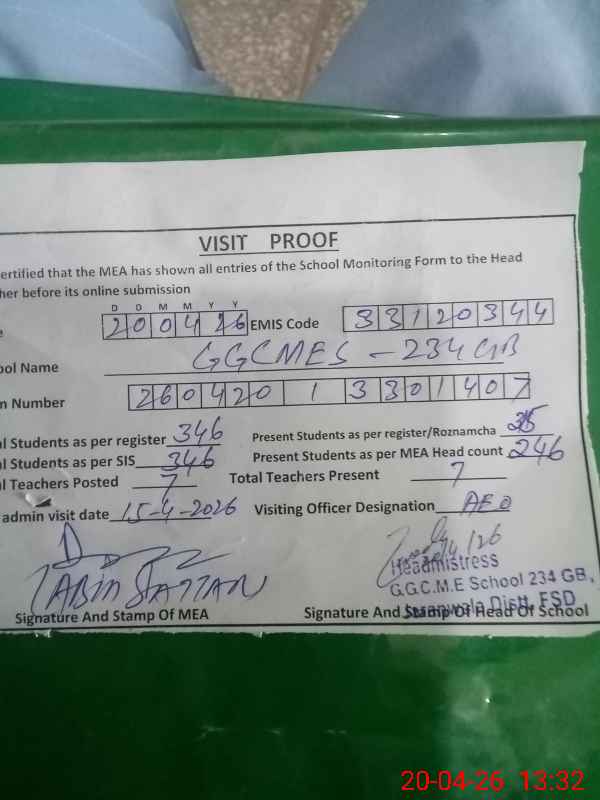 VISIT PROOF
ertified that the MEA has shown all entries of the School Monitoring Form to the Head
her before its online submission
D D M M Y Y
e 200426 EMIS Code 33120344
ool Name GGCMES - 234 GB
n Number 260420 1 3301407
l Students as per register 346 Present Students as per register/Roznamcha
l Students as per SIS 346 Present Students as per MEA Head count 246
l Teachers Posted 7 Total Teachers Present 7
admin visit date 15-4-2026 Visiting Officer Designation AEO
Headmistress
G.G.C.M.E School 234 GB,
Distt. FSD
Signature And Stamp Of MEA Signature And Stamp Of Head Of School
20-04-26 13:32